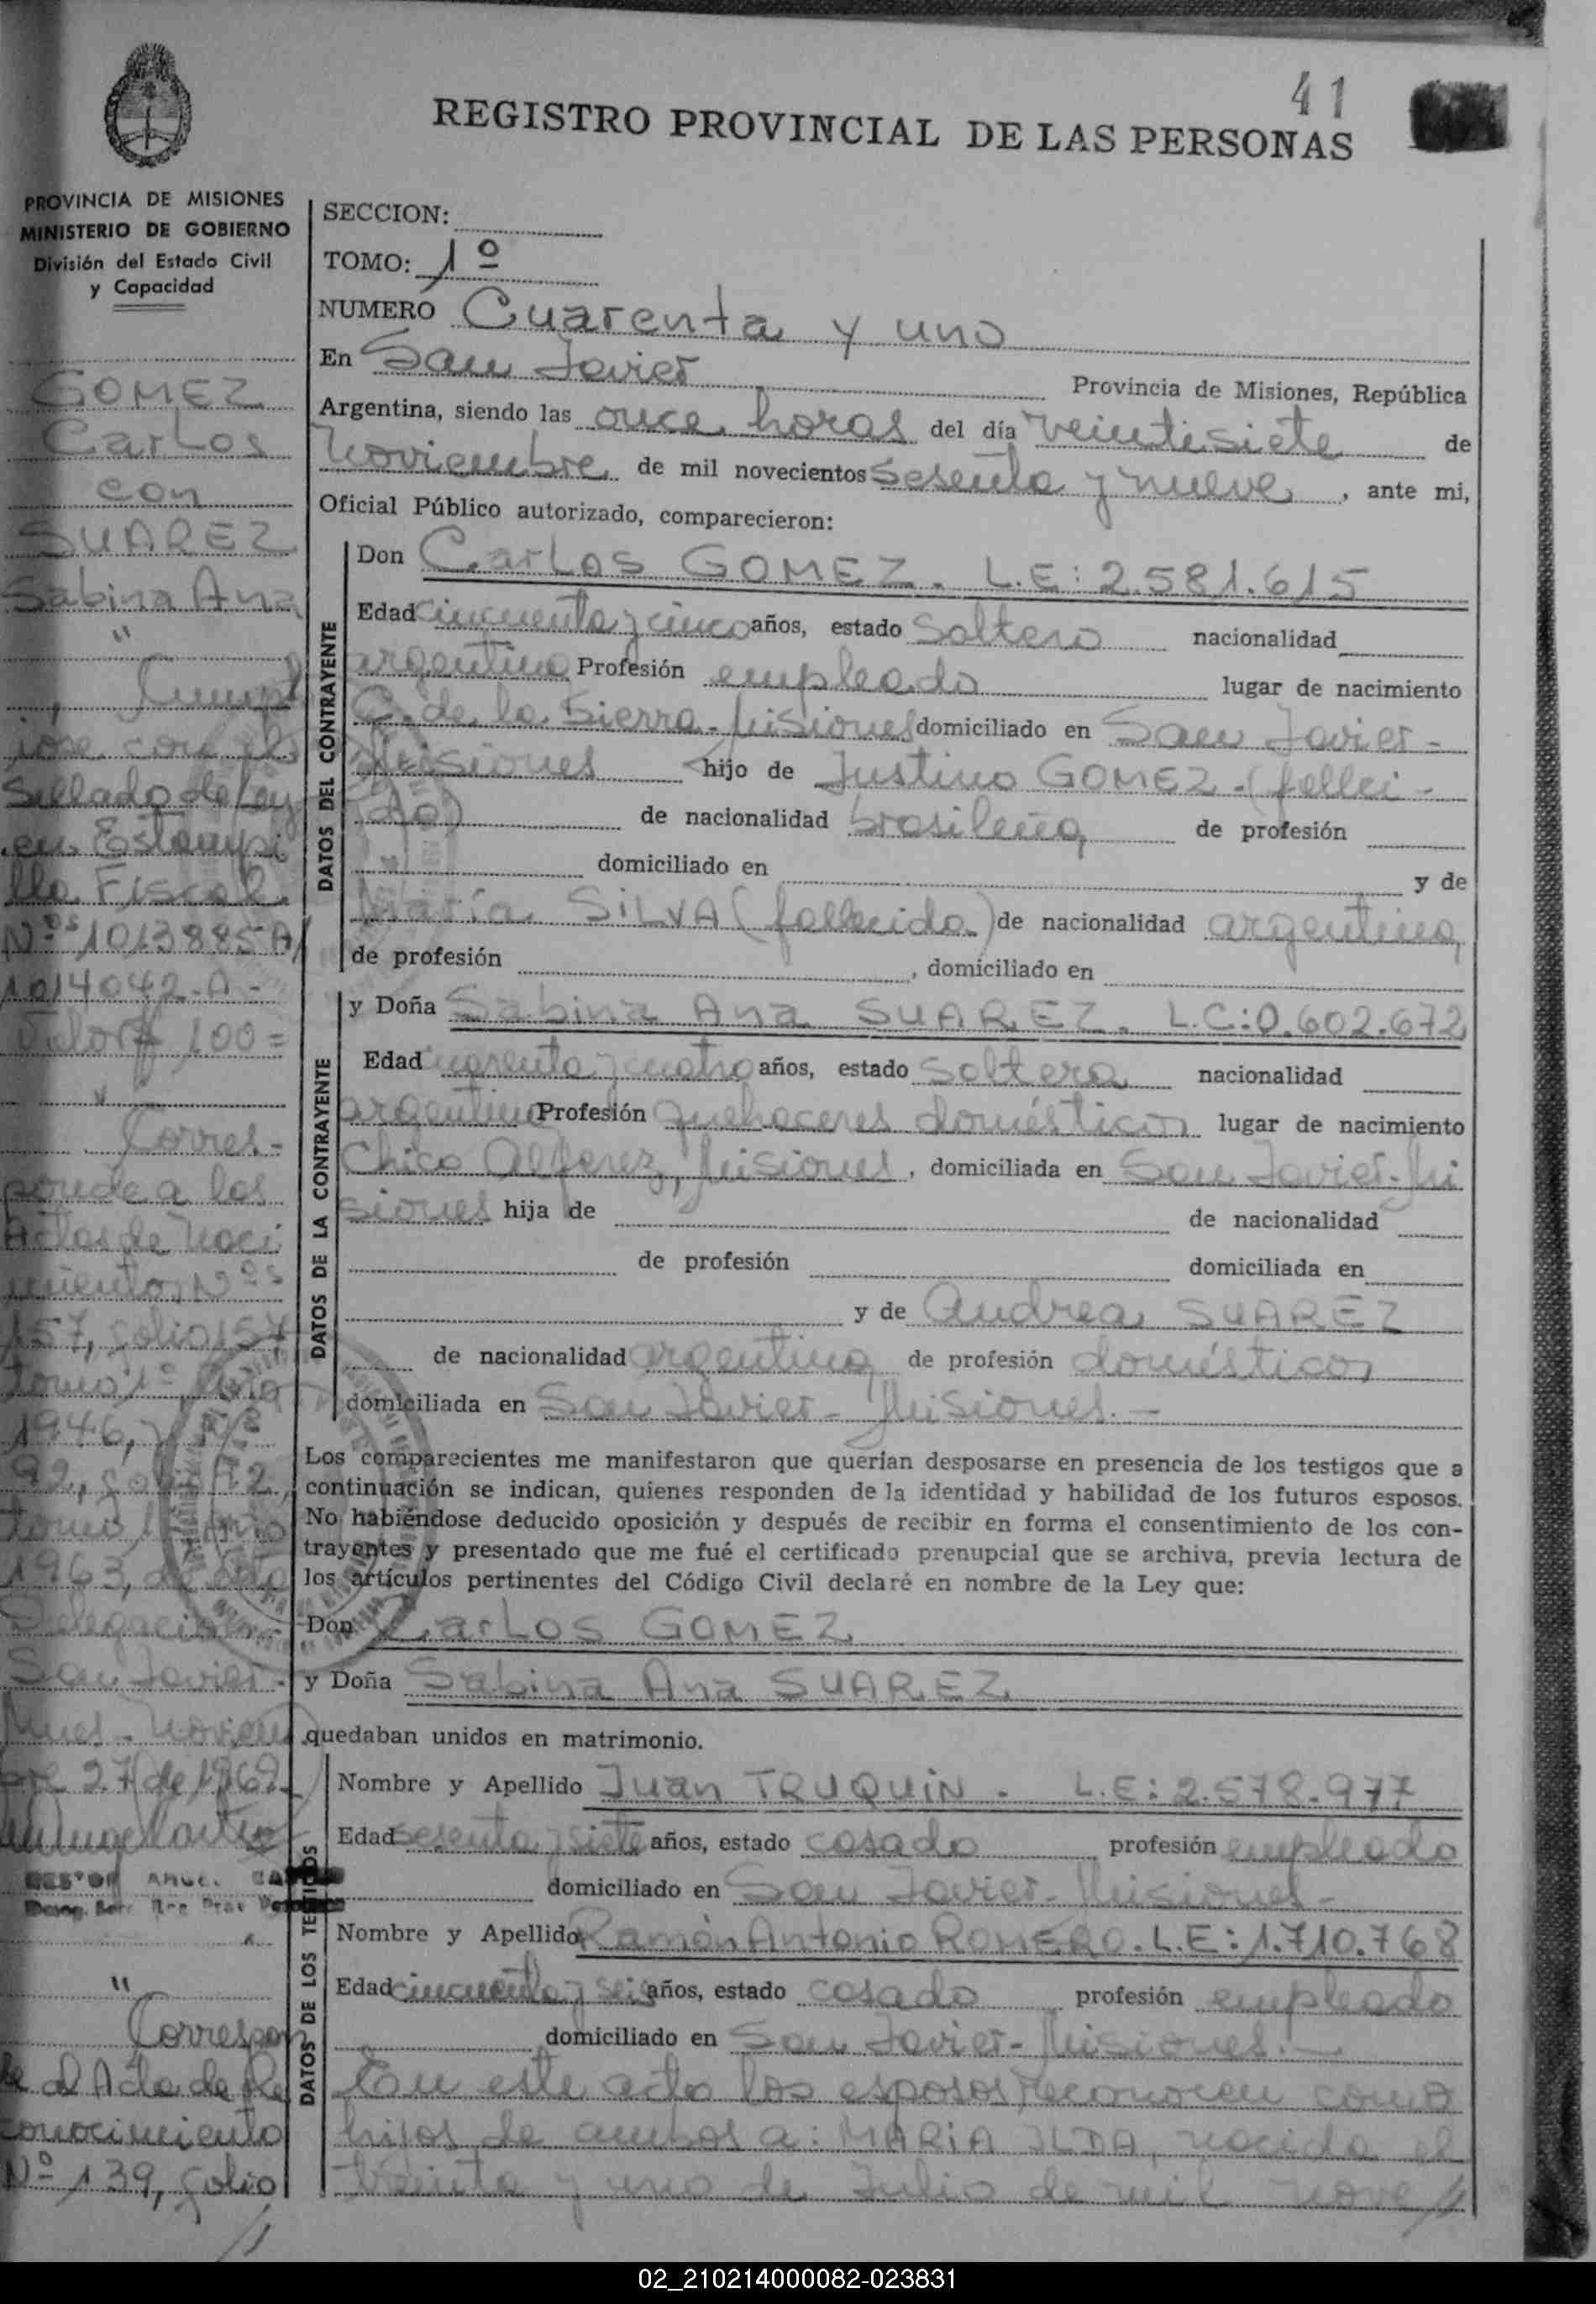 41
REGISTRO PROVINCIAL DE LAS PERSONAS
PROVINCIA DE MISIONES
MINISTERIO DE GOBIERNO
División del Estado Civil
y Capacidad
GOMEZ
Carlos
con
SUAREZ
Sabina Ana
"
Cumpl
iose con el
Sellado de Ley
en Estampi
lla Fiscal
Nºs 1013985A/
1014042-A-
Valor $ 100=
"
Corres-
ponde a las
Actas de Naci
miento, Nºs
157, folio 157
tomo 1º Año
1946, y Nº
92, folio 92,
tomo 1º Año
1963, de esta
Delegación
San Javier-
Mnes- Noviem
bre 27 de 1969-
"
Correspon
de al Acta de Re
conocimiento
Nº 139, folio
//
SECCION:
TOMO: 1º
NUMERO Cuarenta y uno
En San Javier Provincia de Misiones, República
Argentina, siendo las once horas del día veintisiete de
Noviembre de mil novecientos sesenta y nueve, ante mi,
Oficial Público autorizado, comparecieron:
DATOS DEL CONTRAYENTE
Don Carlos GOMEZ. L.E: 2.581.615
Edad cincuenta y cinco años, estado soltero nacionalidad
argentina Profesión empleado lugar de nacimiento
C. de la Sierra-Misiones domiciliado en San Javier-
Misiones hijo de Justino GOMEZ-(falleci-
do) de nacionalidad brasileña de profesión
domiciliado en y de
María SILVA (fallecida) de nacionalidad argentina,
de profesión , domiciliado en
DATOS DE LA CONTRAYENTE
y Doña Sabina Ana SUAREZ. L.C:0.602.672
Edad cuarenta y cuatro años, estado soltera nacionalidad
argentina Profesión quehaceres domésticos lugar de nacimiento
Chico Alferez, Misiones, domiciliada en San Javier-Mi
siones hija de de nacionalidad
de profesión domiciliada en
y de Andrea SUAREZ
de nacionalidad argentina de profesión domésticos,
domiciliada en San Javier- Misiones.-
Los comparecientes me manifestaron que querían desposarse en presencia de los testigos que a
continuación se indican, quienes responden de la identidad y habilidad de los futuros esposos.
No habiéndose deducido oposición y después de recibir en forma el consentimiento de los con-
trayentes y presentado que me fué el certificado prenupcial que se archiva, previa lectura de
los artículos pertinentes del Código Civil declaré en nombre de la Ley que:
Don Carlos GOMEZ
y Doña Sabina Ana SUAREZ
quedaban unidos en matrimonio.
DATOS DE LOS TESTIGOS
Nombre y Apellido Juan TRUQUIN. L.E: 2.578.977
Edad sesenta y siete años, estado casado profesión empleado
domiciliado en San Javier- Misiones-
Nombre y Apellido Ramón Antonio ROMERO. L.E: 1.710.768
Edad cincuenta y seis años, estado casado profesión empleado
domiciliado en San Javier-Misiones.-
En este acto los esposos reconocen como
hijos de ambos a: MARIA ILDA, nacida el
treinta y uno de Julio de mil nove//
02_210214000082-023831